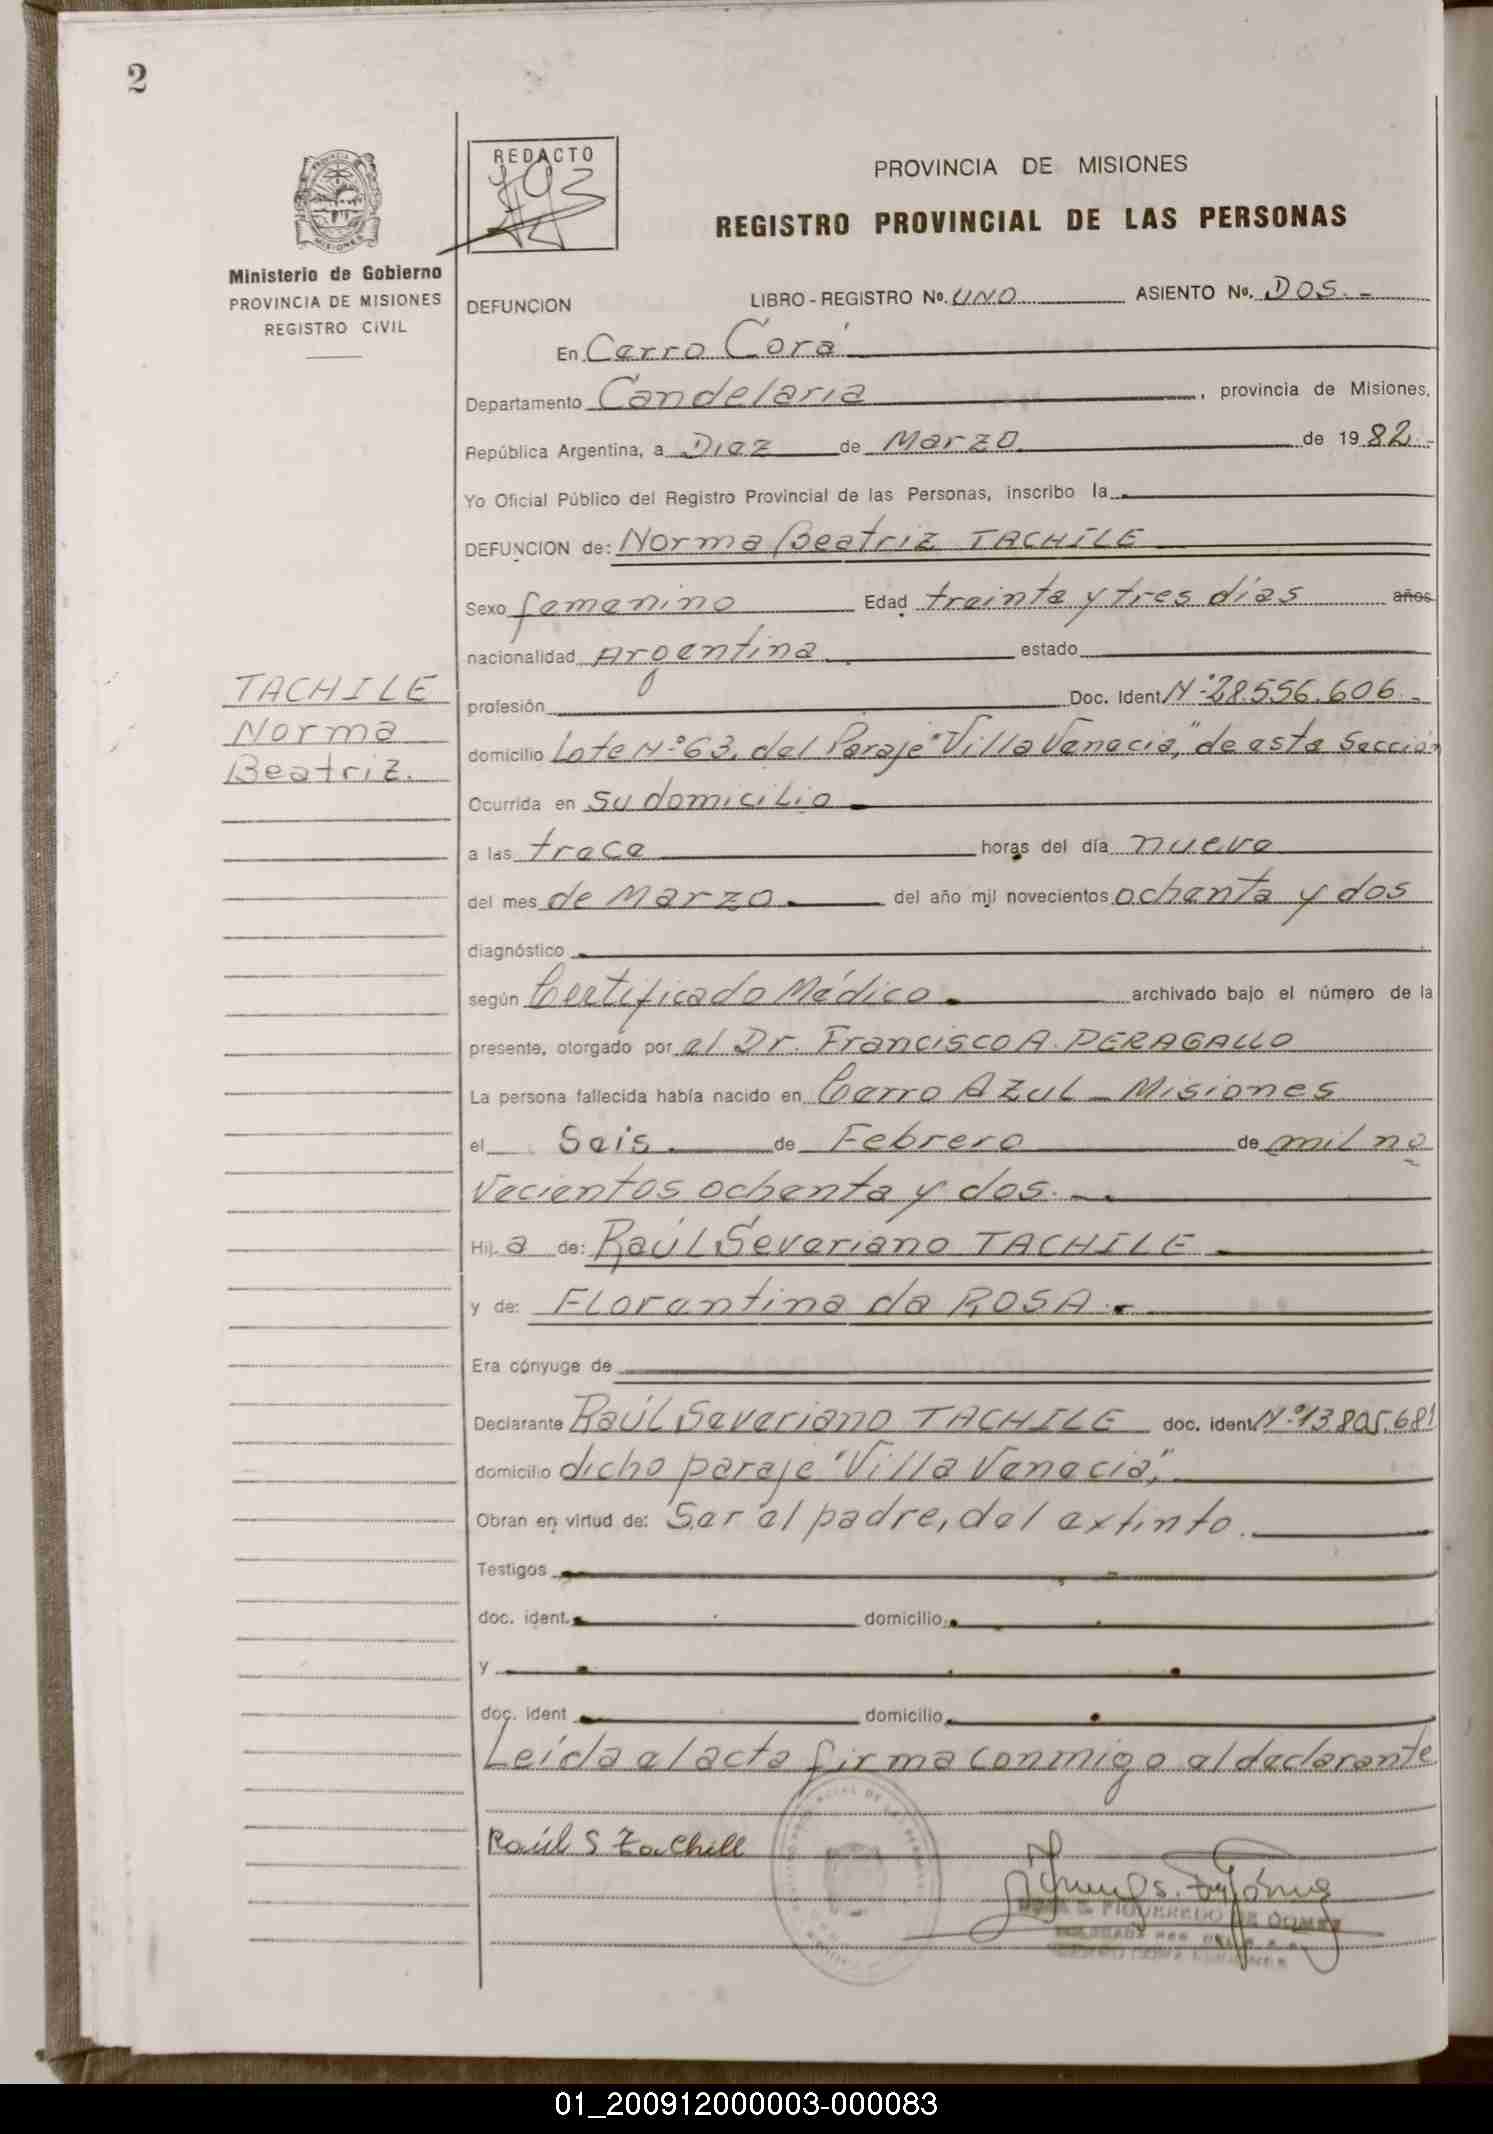 2
REDACTO
PROVINCIA DE MISIONES
REGISTRO PROVINCIAL DE LAS PERSONAS
Ministerio de Gobierno
PROVINCIA DE MISIONES
REGISTRO CIVIL
DEFUNCION LIBRO - REGISTRO No. UNO ASIENTO No. DOS.-
En Cerro Corá
Departamento Candelaria, provincia de Misiones,
República Argentina, a Diez de Marzo de 1982.-
Yo Oficial Público del Registro Provincial de las Personas, inscribo la
DEFUNCION de: Norma Beatriz TACHILE
Sexo femenino Edad treinta y tres días años
nacionalidad Argentina estado
TACHILE
Norma
Beatriz.
profesión Doc. Ident. Nº 28.556.606.-
domicilio Lote Nº 63, del Paraje "Villa Venecia," de esta Sección
Ocurrida en su domicilio
a las trece horas del día nueve
del mes de Marzo. del año mil novecientos ochenta y dos
diagnóstico
según Certificado Médico. archivado bajo el número de la
presente, otorgado por el Dr. Francisco A. PERAGALLO
La persona fallecida había nacido en Cerro Azul - Misiones
el Seis de Febrero de mil no
vecientos ochenta y dos.-
Hij a de: Raúl Severiano TACHILE
y de: Florentina da ROSA.
Era cónyuge de
Declarante Raúl Severiano TACHILE doc. ident. Nº 13.805.681
domicilio dicho paraje "Villa Venecia,"
Obran en virtud de: Ser el padre, del extinto.
Testigos
doc. ident. domicilio
y
doc. ident domicilio
Leída el acta firma conmigo el declarante
Raúl S Tachill
FIGUEREDO DE GOMEZ
01_200912000003-000083